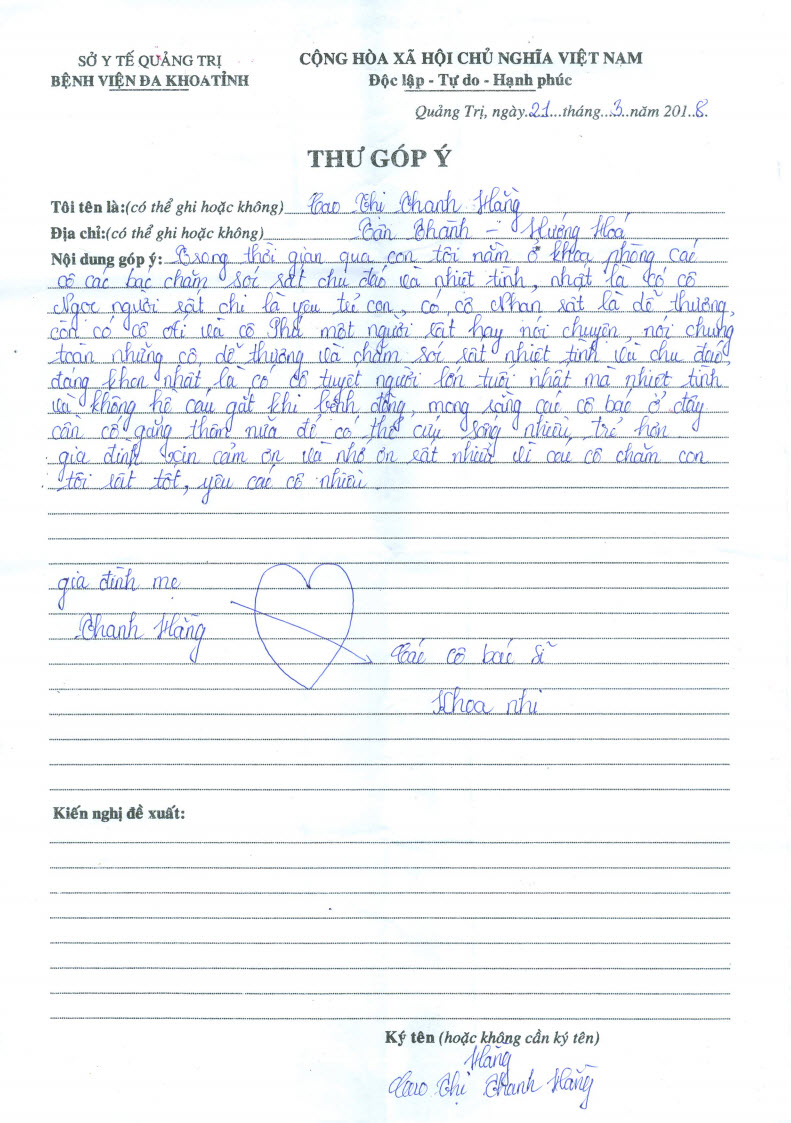 SỞ Y TẾ QUẢNG TRỊ
BỆNH VIỆN ĐA KHOA TỈNH
CỘNG HÒA XÃ HỘI CHỦ NGHĨA VIỆT NAM
Độc lập - Tự do - Hạnh phúc
Quảng Trị, ngày 21 tháng 3 năm 2018.
THƯ GÓP Ý
Tôi tên là:(có thể ghi hoặc không) Cao Thị Thanh Hằng
Địa chỉ:(có thể ghi hoặc không) Tân Thành - Hướng Hoá
Nội dung góp ý: Trong thời gian qua con tôi nằm ở khoa phòng các
cô các bác chăm sóc rất chu đáo và nhiệt tình, nhất là có cô
Ngọc người rất chi là yêu trẻ con, có cô Nhan rất là dễ thương,
còn có cô và cô một người rất hay nói chuyện, nói chung
toàn những cô dễ thương và chăm sóc rất nhiệt tình và chu đáo
đáng khen nhất là có cô tuyệt người lớn tuổi nhất mà nhiệt tình
và không hề cáu gắt khi bệnh đông, mong rằng các cô bác ở đây
cần cố gắng thêm nữa để có thể cứu sống nhiều trẻ hơn
gia đình xin cảm ơn và nhớ ơn rất nhiều vì các cô chăm con
tôi rất tốt, yêu các cô nhiều.
gia đình mẹ
Thanh Hằng
Các cô bác sĩ
Khoa nhi
Kiến nghị đề xuất:
Ký tên (hoặc không cần ký tên)
Hằng
Cao Thị Thanh Hằng